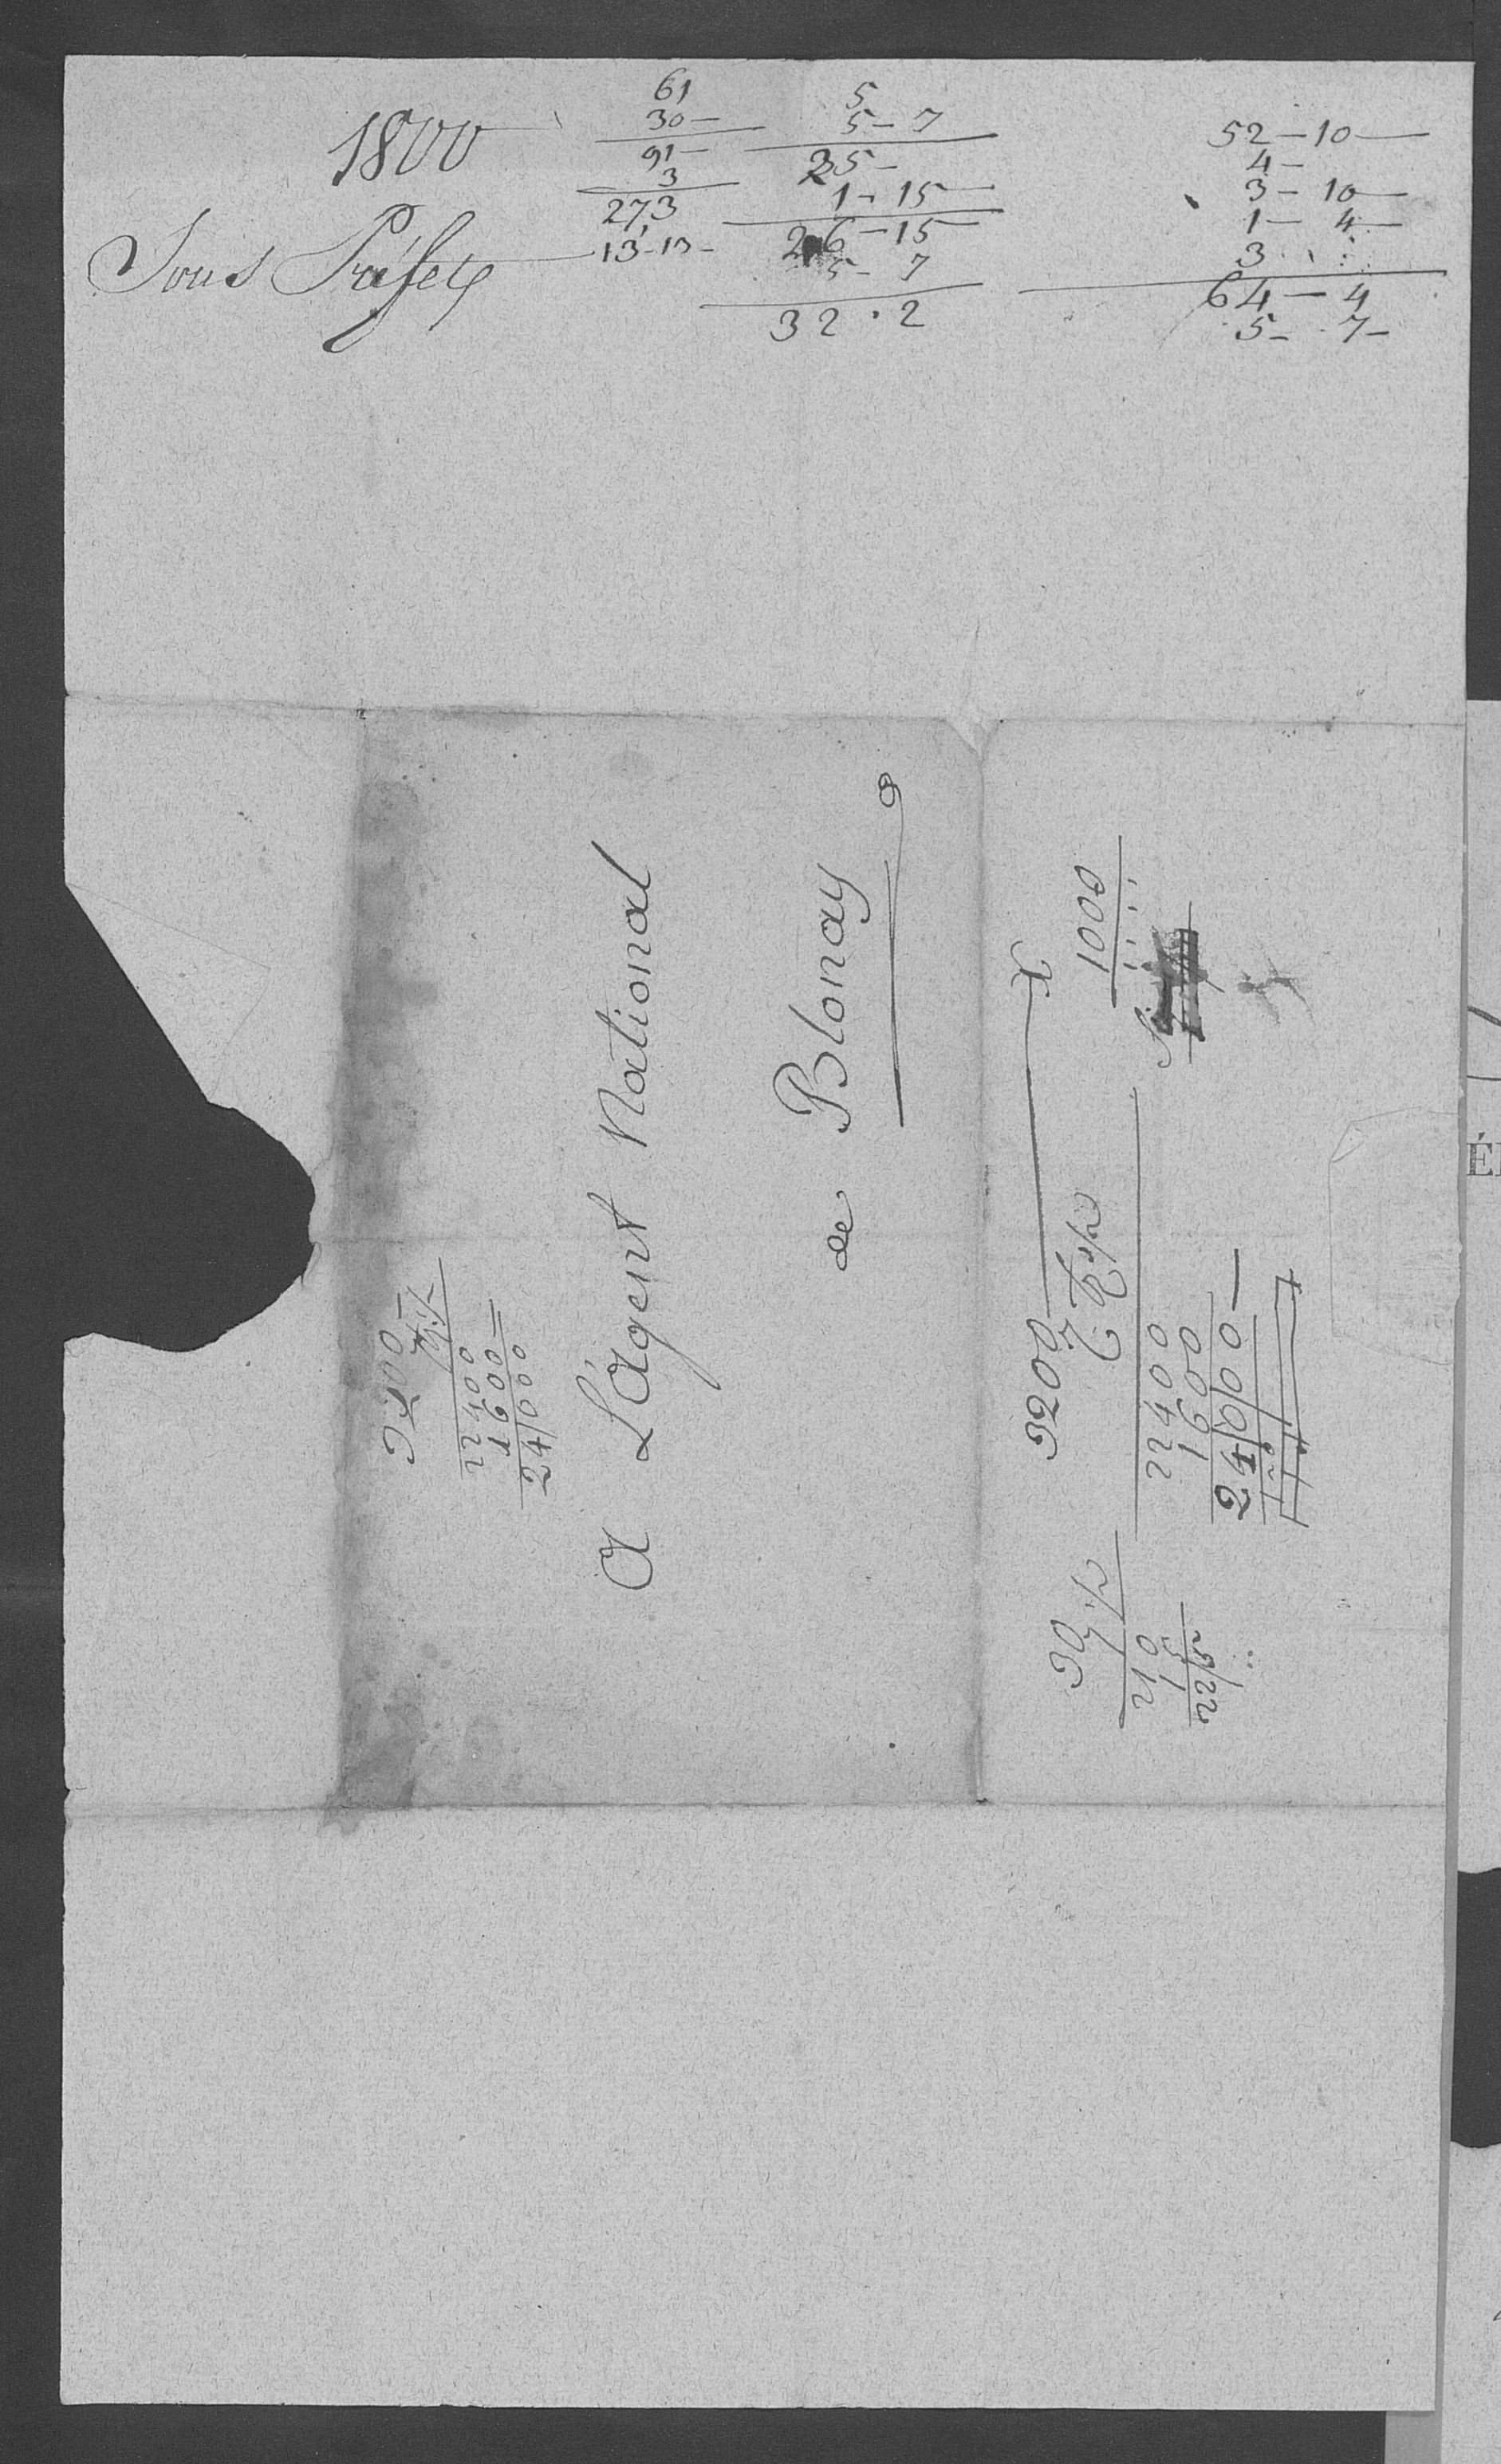 1800
Sous Préfet
61
30 —
91 —
3
273
13-13-
5
5 - 7
25 -
1 - 15
26 - 15
5 - 7
32 . 2
52 - 10
4 -
3 - 10
1 - 4
3
64 - 4
5 - 7 -
A L'agent National
de Blonay
3200
22400
1600
24/000
3200
22400
1600
24/0/00
1000
30
7 1/2
210
15
22/5
ÉL